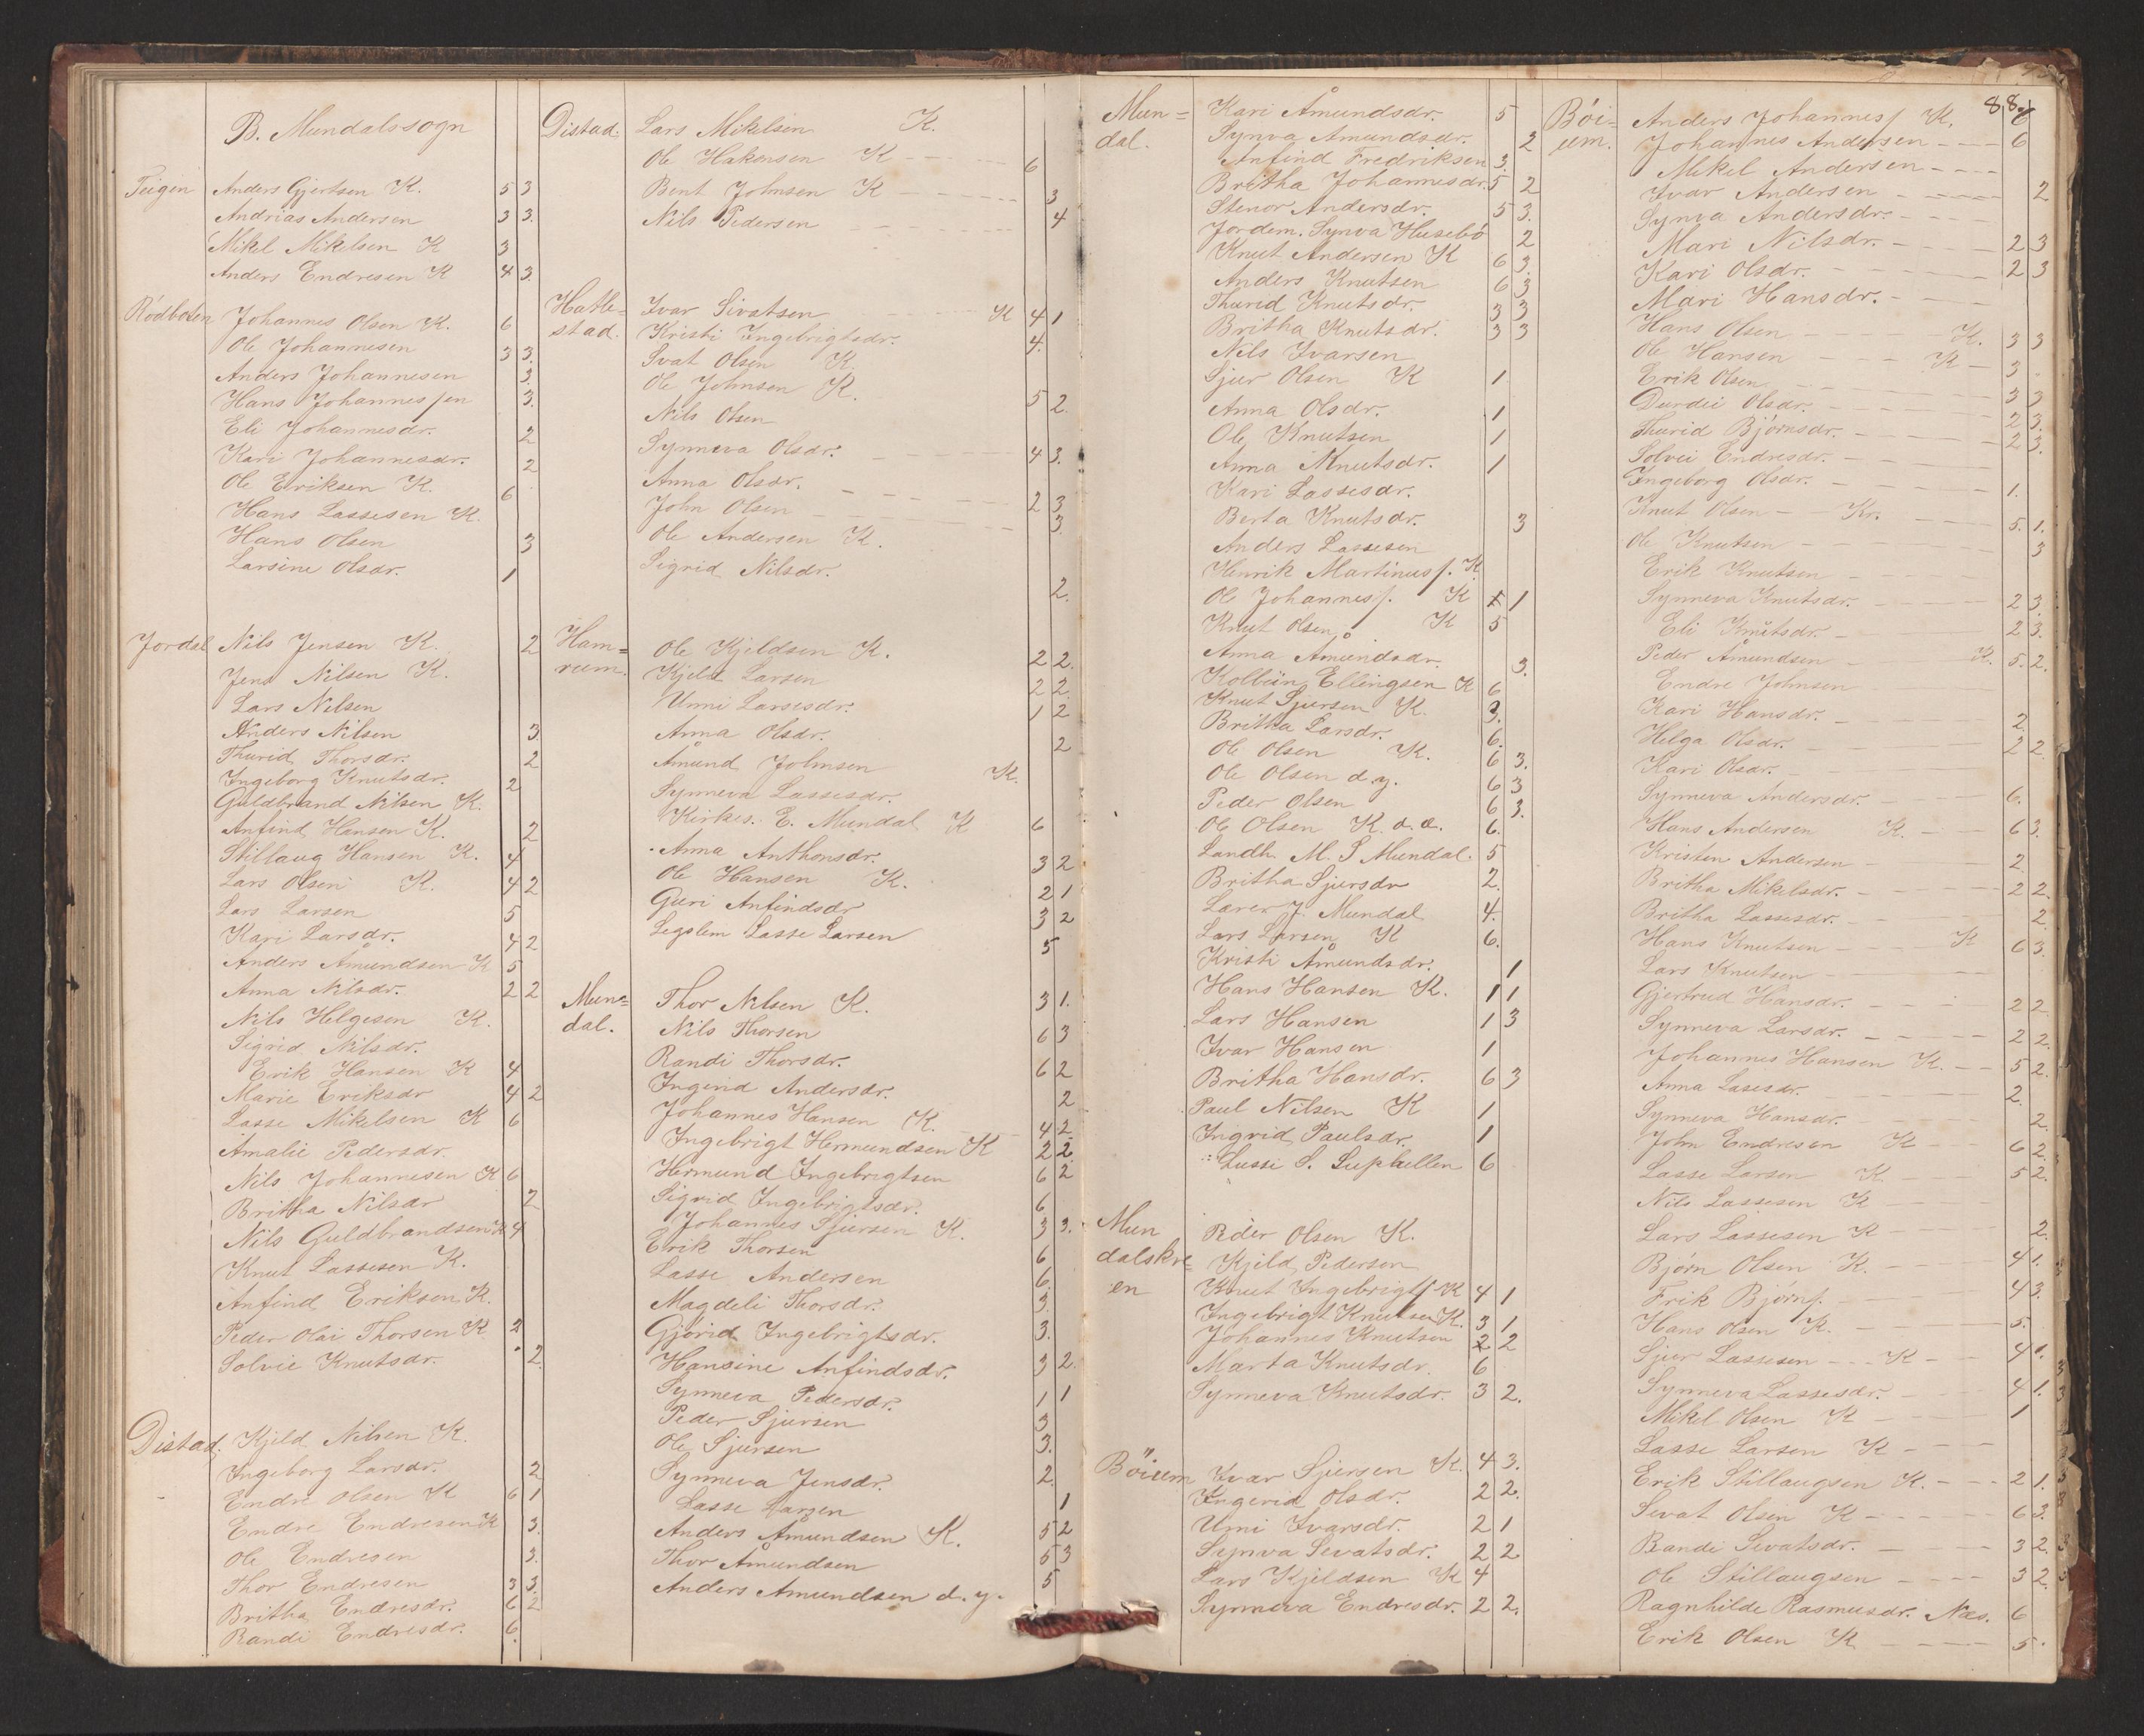 B. Mundalssogn
Teigen Anders Gjertsen K. 5 3
Andrias Andersen 3 3.
Mikel Mikelsen K 3
Anders Endresen K 4 3.
Rödbolen Johannes Olsen K. 6
Ole Johannesen 3 3.
Anders Johannesen 3.
Hans Johannessen 3.
Eli Johannesdr. 2
Kari Johannesdr. 2
Ole Eriksen K. 6
Hans Lassesen K.
Hans Olsen 3
Larsine Olsdr. 1
Jordal Nils Jensen K. 2
Jens Nilsen K.
Lars Nilsen
Anders Nilsen 3.
Thurid Thorsdr. 2
Ingeborg Knutsdr. 2
Guldbrand Nilsen K.
Anfind Hansen K. 2
Stillaug Hansen K. 4
Lars Olsen K. 4 2
Lars Larsen 5
Kari Larsdr. 4 2
Anders Åmundsen K 5
Anna Nilsdr. 2 2
Nils Helgesen K.
Sigrid Nilsdr.
Erik Hansen K 4
Marie Eriksdr 4 2
Lasse Mikelsen K 6
Amalie Pedersdr.
Nils Johannesen K 6
Britha Nilsdr 2
Nils Guldbrandsen K 4
Knut Lassesen K.
Anfind Eriksen K.
Peder Olai Thorsen K 2
Solvie Knutsdr. 2
Distad. Kjeld Nilsen K.
Ingeborg Larsdr. 2
Endre Olsen K 6 1
Endre Endresen K 3.
Ole Endresen 3.
Thor Endresen 3 3.
Britha Endresdr. 6 2
Randi Endresdr. 6.
Distad. Lars Mikelsen K.
Ole Hakensen K 6
Bent Johnsen K 3
Nils Pedersen 4
Hatle= Ivar Sivatsen K 4 1
stad. Kristi Ingebrigtsdr. 4.
Svat Olsen K.
Ole Johnsen K. 5 2.
Nils Olsen
Synneva Olsdr. 4 3.
Anna Olsdr.
John Olsen 2 3
Ole Andersen K. 3.
Sigrid Nilsdr. 2.
Ham= Ole Kjeldsen K. 2 2.
rum. Kjeld Larsen 2 2.
Unni Larsesdr. 1 2
Anna Olsdr. 2
Åmund Johnsen K.
Synneva Lassesdr.
Kirkes. E. Mundal K 6
Anna Anthonsdr. 3 2
Ole Hansen K. 2 1
Guri Anfindsdr 3 2
Legslem Lasse Larsen 5
Mun= Thor Nilsen K. 3 1.
dal. Nils Thorsen 6 3
Randi Thorsdr. 6 2
Ingerid Andersdr. 2
Johannes Hansen K. 4 2.
Ingebrigt Hermundsen K 2 2.
Hermund Ingebrigtsen 6 2
Sigrid Ingebrigtsdr. 6
Johannes Sjursen K. 3 3.
Erik Thorsen 6
Lasse Andersen 6.
Magdeli Thorsdr. 3.
Gjörid Ingebrigtsdr. 3.
Hansine Anfindsdr. 3 2.
Synneva Pedersdr. 1 1
Peder Sjursen 3
Ole Sjursen 3.
Synneva Jensdr. 2.
Lasse Larsen 1
Anders Åmundsen K. 5 2
Thor Åmundsen 5 3
Anders Åmundsen d. y. 5
88
Mun= Kari Åmundsdr. 5
dal. Synva Åmundsdr. 2
Anfind Fredriksen 3.
Britha Johannesdr. 5 2
Stenor Andersdr. 5 3.
Jordem. Synva Husebö 2
Knut Andersen K 6 3.
Anders Knutsen 6 3
Thurid Knutsdr. 3 3
Britha Knutsdr. 3 3
Nils Ivarsen
Sjur Olsen K 1
Anna Olsdr. 1
Ole Knutsen 1
Anna Knutsdr. 1
Kari Lassesdr.
Berta Knutsdr. 3
Anders Lassesen
Henrik Martinuss. K
Ole Johanness. K 1
Knut Olsen K 5
Anna Åmundsdr. 3.
Kolbein Ellingsen K 6
Knut Sjursen K. 3.
Britha Larsdr. 6.
Ole Olsen K. 6 3.
Ole Olsen d. y. 6 3
Peder Olsen 6 3.
Ole Olsen K. d. æ. 6.
Landh. M. S Mundal. 5
Britha Sjursdr 2.
Lærer J. Mundal 4.
Lars Larsen K 6.
Kristi Åmundsdr. 1
Hans Hansen K. 1 1
Lars Hansen 1 3
Ivar Hansen 1
Britha Hansdr. 6 3
Paul Nilsen K 1
Ingrid Paulsdr. 1
Lussi S. Suphellen 6
Mun Peder Olsen K.
dalskre= Kjeld Pedersen
en Knut Ingebrigts. K 4 1
Ingebrigt Knutsen K. 3 1
Johannes Knutsen 2 2
Marta Knutsdr 6
Synneva Knutsdr. 3 2.
Böium Ivar Sjursen K. 4 3.
Ingerid Olsdr. 2 2.
Unni Ivarsdr. 2 1
Synva Sevatsdr. 2 2
Lars Kjeldsen K 4
Synneva Endresdr. 2 2.
Böi- Anders Johanness. K.
um. Johannes Andersen 6
Mikel Andersen
Ivar Andersen 2
Synva Andersdr.
Mari Nilsdr. 2 3
Kari Olsdr. 2 3
Mari Hansdr.
Hans Olsen K. 3 3
Ole Hansen K 3
Erik Olsen 3 3
Durdei Olsdr. 2 3.
Thurid Björnsdr. 2 3.
Solvei Endresdr.
Ingeborg Olsdr. 1.
Knut Olsen Kr. 5. 1.
Ole Knutsen 3
Erik Knutsen
Synneva Knutsdr. 2 3.
Eli Knutsdr. 2 3.
Peder Åmundsen K. 5. 2.
Endre Johnsen
Kari Hansdr. 2
Helga Olsdr. 2 2
Kari Olsdr.
Synneva Andersdr. 6.
Hans Andersen K. 6 3.
Kristen Andersen 2.
Britha Mikelsdr. 2 2.
Britha Lassesdr. 2
Hans Knutsen K 6 3.
Lars Knutsen
Gjertrud Hansdr. 2 2
Synneva Larsdr. 2 2.
Johannes Hansen K. 5 2.
Anna Lasesdr. 2.
Synneva Hansdr. 2.
John Endresen K 6 2.
Lasse Larsen K. 5 2.
Nils Lassesen K
Lars Lassesen K 2.
Björn Olsen K. 4 1.
Erik Björns. 4 3.
Hans Olsen K. 5.
Sjur Lassesen K 4
Synneva Lassesdr. 4 1.
Mikel Olsen K 1
Lasse Larsen K
Erik Stillaugsen K. 2 1.
Sevat Olsen K 6 3.
Randi Sivatsdr. 3 2.
Ole Stillaugsen 3 2.
Ragnhilde Rasmusdr. Næs. 6
Erik Olsen K 5.